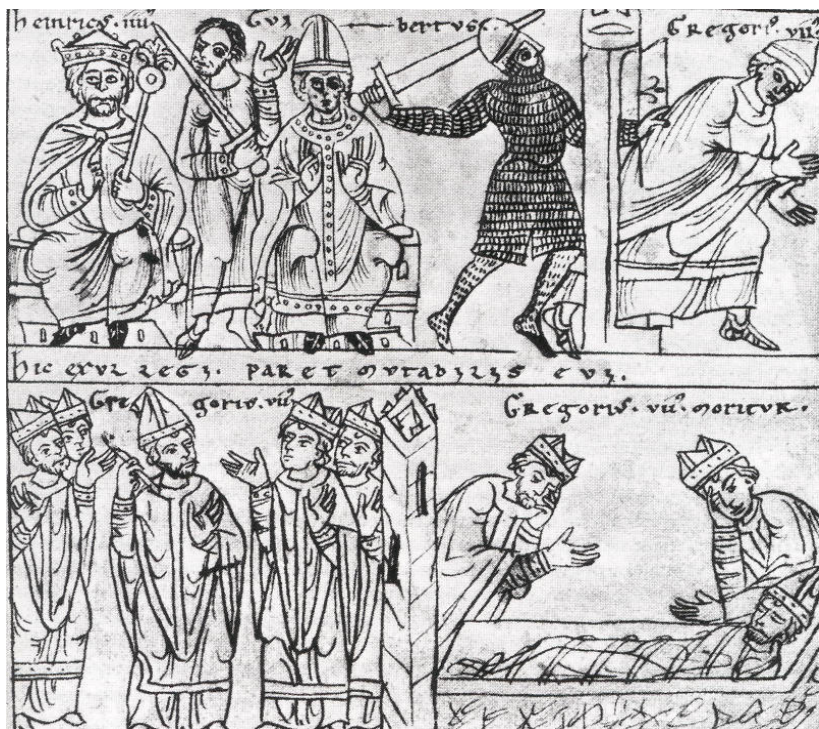 heinricus. iiiiᵘˢ GVI bertus. Gregoriꝰ. viiꝰ
hic exul regi. paret mutabilis evi.
Gre gorius. viiꝰ Gregoriꝰ. viiꝰ. moritur.